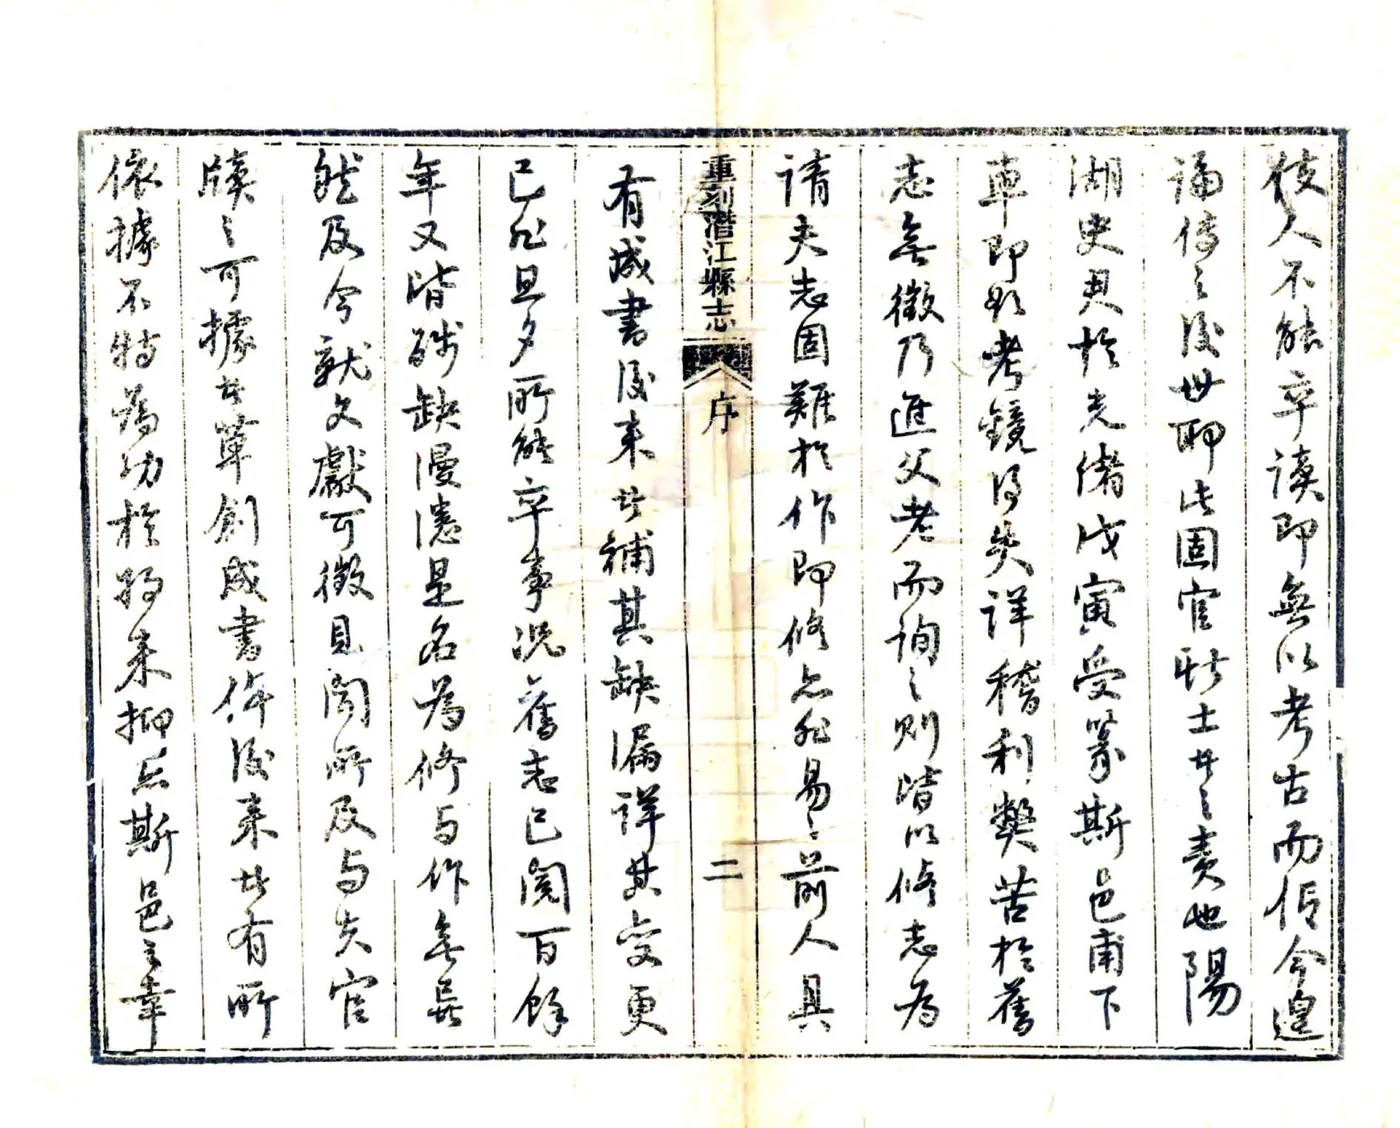 後人不能卒讀即無以考古而信今遑
論傳之後世耶此固官斯土者之責也陽
湖史君於光緒戊寅受篆斯邑甫下
車即形考鏡得失詳稽利弊苦於舊
志無徵乃進父老而詢之則皆以修志為
請夫志固難於作即修亦非易之前人具
重刻潛江縣志
序
二
有成書後來者補其缺漏詳其變更
已非旦夕所能卒事況舊志已閱百餘
年又皆殘缺漫漶是名為修与作無異
然及今就文獻可徵見聞所及与夫官
牘之可據者草創成書俾後來者有所
依據不特為功於將来抑亦斯邑之幸